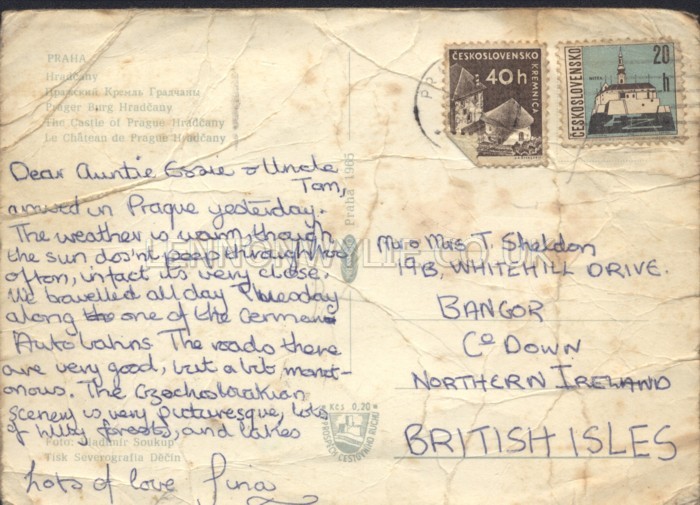 PRAHA
Hradčany
Пражский Кремль Градчаны
Prager Burg Hradčany
The Castle of Prague Hradčany
Le Château de Prague Hradčany
ČESKOSLOVENSKO
40h
KREMNICA
ČESKOSLOVENSKO
20 h
NITRA
Praha 1965
Dear Auntie Essie & Uncle
Tom,
arrived in Prague yesterday.
The weather is warm, though
the sun dos'nt peep through too
often, in fact its very close.
We travelled all day Tuesday
along the one of the German
Autobahns The roads there
are very good, but a bit monot-
onous. The Czechoslovakian
scenery is very picturesque, lots
of hilly forests, and lakes
Lots of love
Mr & Mrs T. Sheldon
19B, WHITEHILL DRIVE.
BANGOR
Co DOWN
NORTHERN IRELAND
BRITISH ISLES
Kčs 0,20
Foto: Vladimír Soukup
Tisk Severografia Děčín
LENNONWYLIE.CO.UK